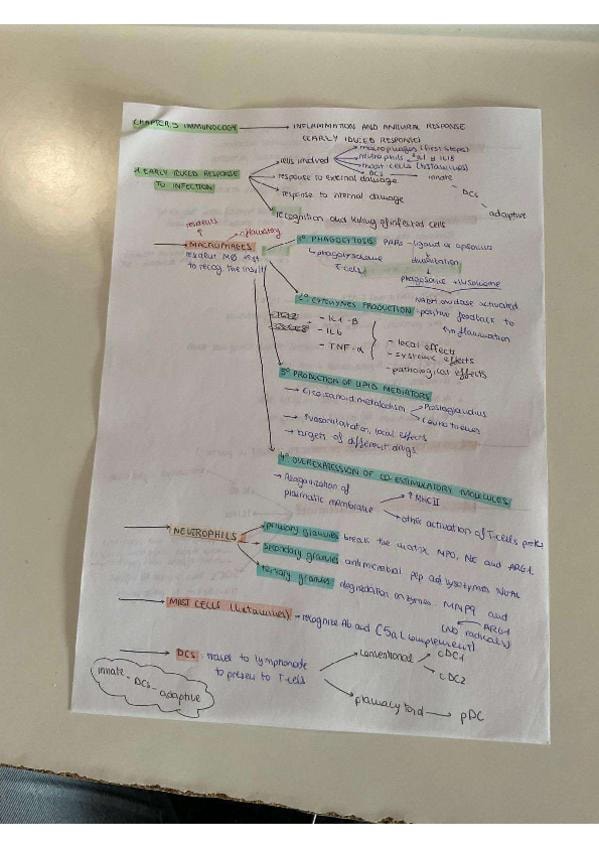 CHAPTER 3 IMMUNOLOGY → INFLAMMATION AND ANTIVIRAL RESPONSE
(EARLY IDUCED RESPONSE)
1. EARLY IDUCED RESPONSE TO INFECTION
cells involved
macrophages (first steps)
neutrophils IL8
mast cells (histamines)
DCs → innate
DCs
adaptive
response to external damage
response to internal damage
recognition and killing of infected cells
residents
inflammatory
→ MACROPHAGES
resident MØ first
to recog. the insult
1º PHAGOCYTOSIS PRRs - ligand or opsonins
phagolysosome
T-cells
phagosome + lysosome
NADPH oxidase activated
2º CYTOKYNES PRODUCTION - positive feedback to
inflammation
- IL1-β
- IL6
- TNF-α
- local effects
- systemic effects
- pathological effects
3º PRODUCTION OF LIPID MEDIATORS
→ Eicosanoid metabolism
Prostaglandins
→ local effects
→ targets of different drugs
4º OVEREXPRESSION OF CO-ESTIMULATORY MOLECULES
→ Reorganization of
plasmatic membrane
↑ MHCII
other activation of T-cells
→ NEUTROPHILS
primary granules break the matrix MPO, NE and ARG1
secondary granules antimicrobial pep and lysozymes
tertiary granules degradation enzymes MMP9 and
ARG1
(NO radicals)
→ MAST CELLS (histamines) → recognise Ab and C5a (complement)
→ DCs travel to lymphonode
to present to T-cells
conventional
cDC1
cDC2
plasmacytoid → pDC
innate - DCs - adaptive